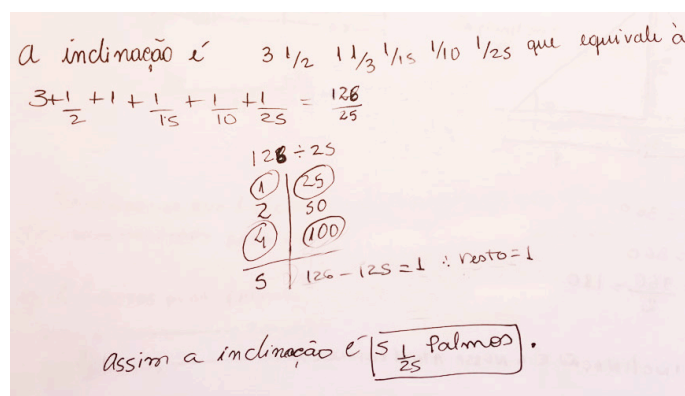 A inclinação é 3 1/2 1 1/3 1/15 1/10 1/25 que equivale à
3+1/2 + 1 + 1/15 + 1/10 + 1/25 = 126/25
126 ÷ 25
1 | 25
2 | 50
4 | 100
5 | 126 - 125 = 1 ∴ resto = 1
Assim a inclinação é 5 1/25 Palmos.